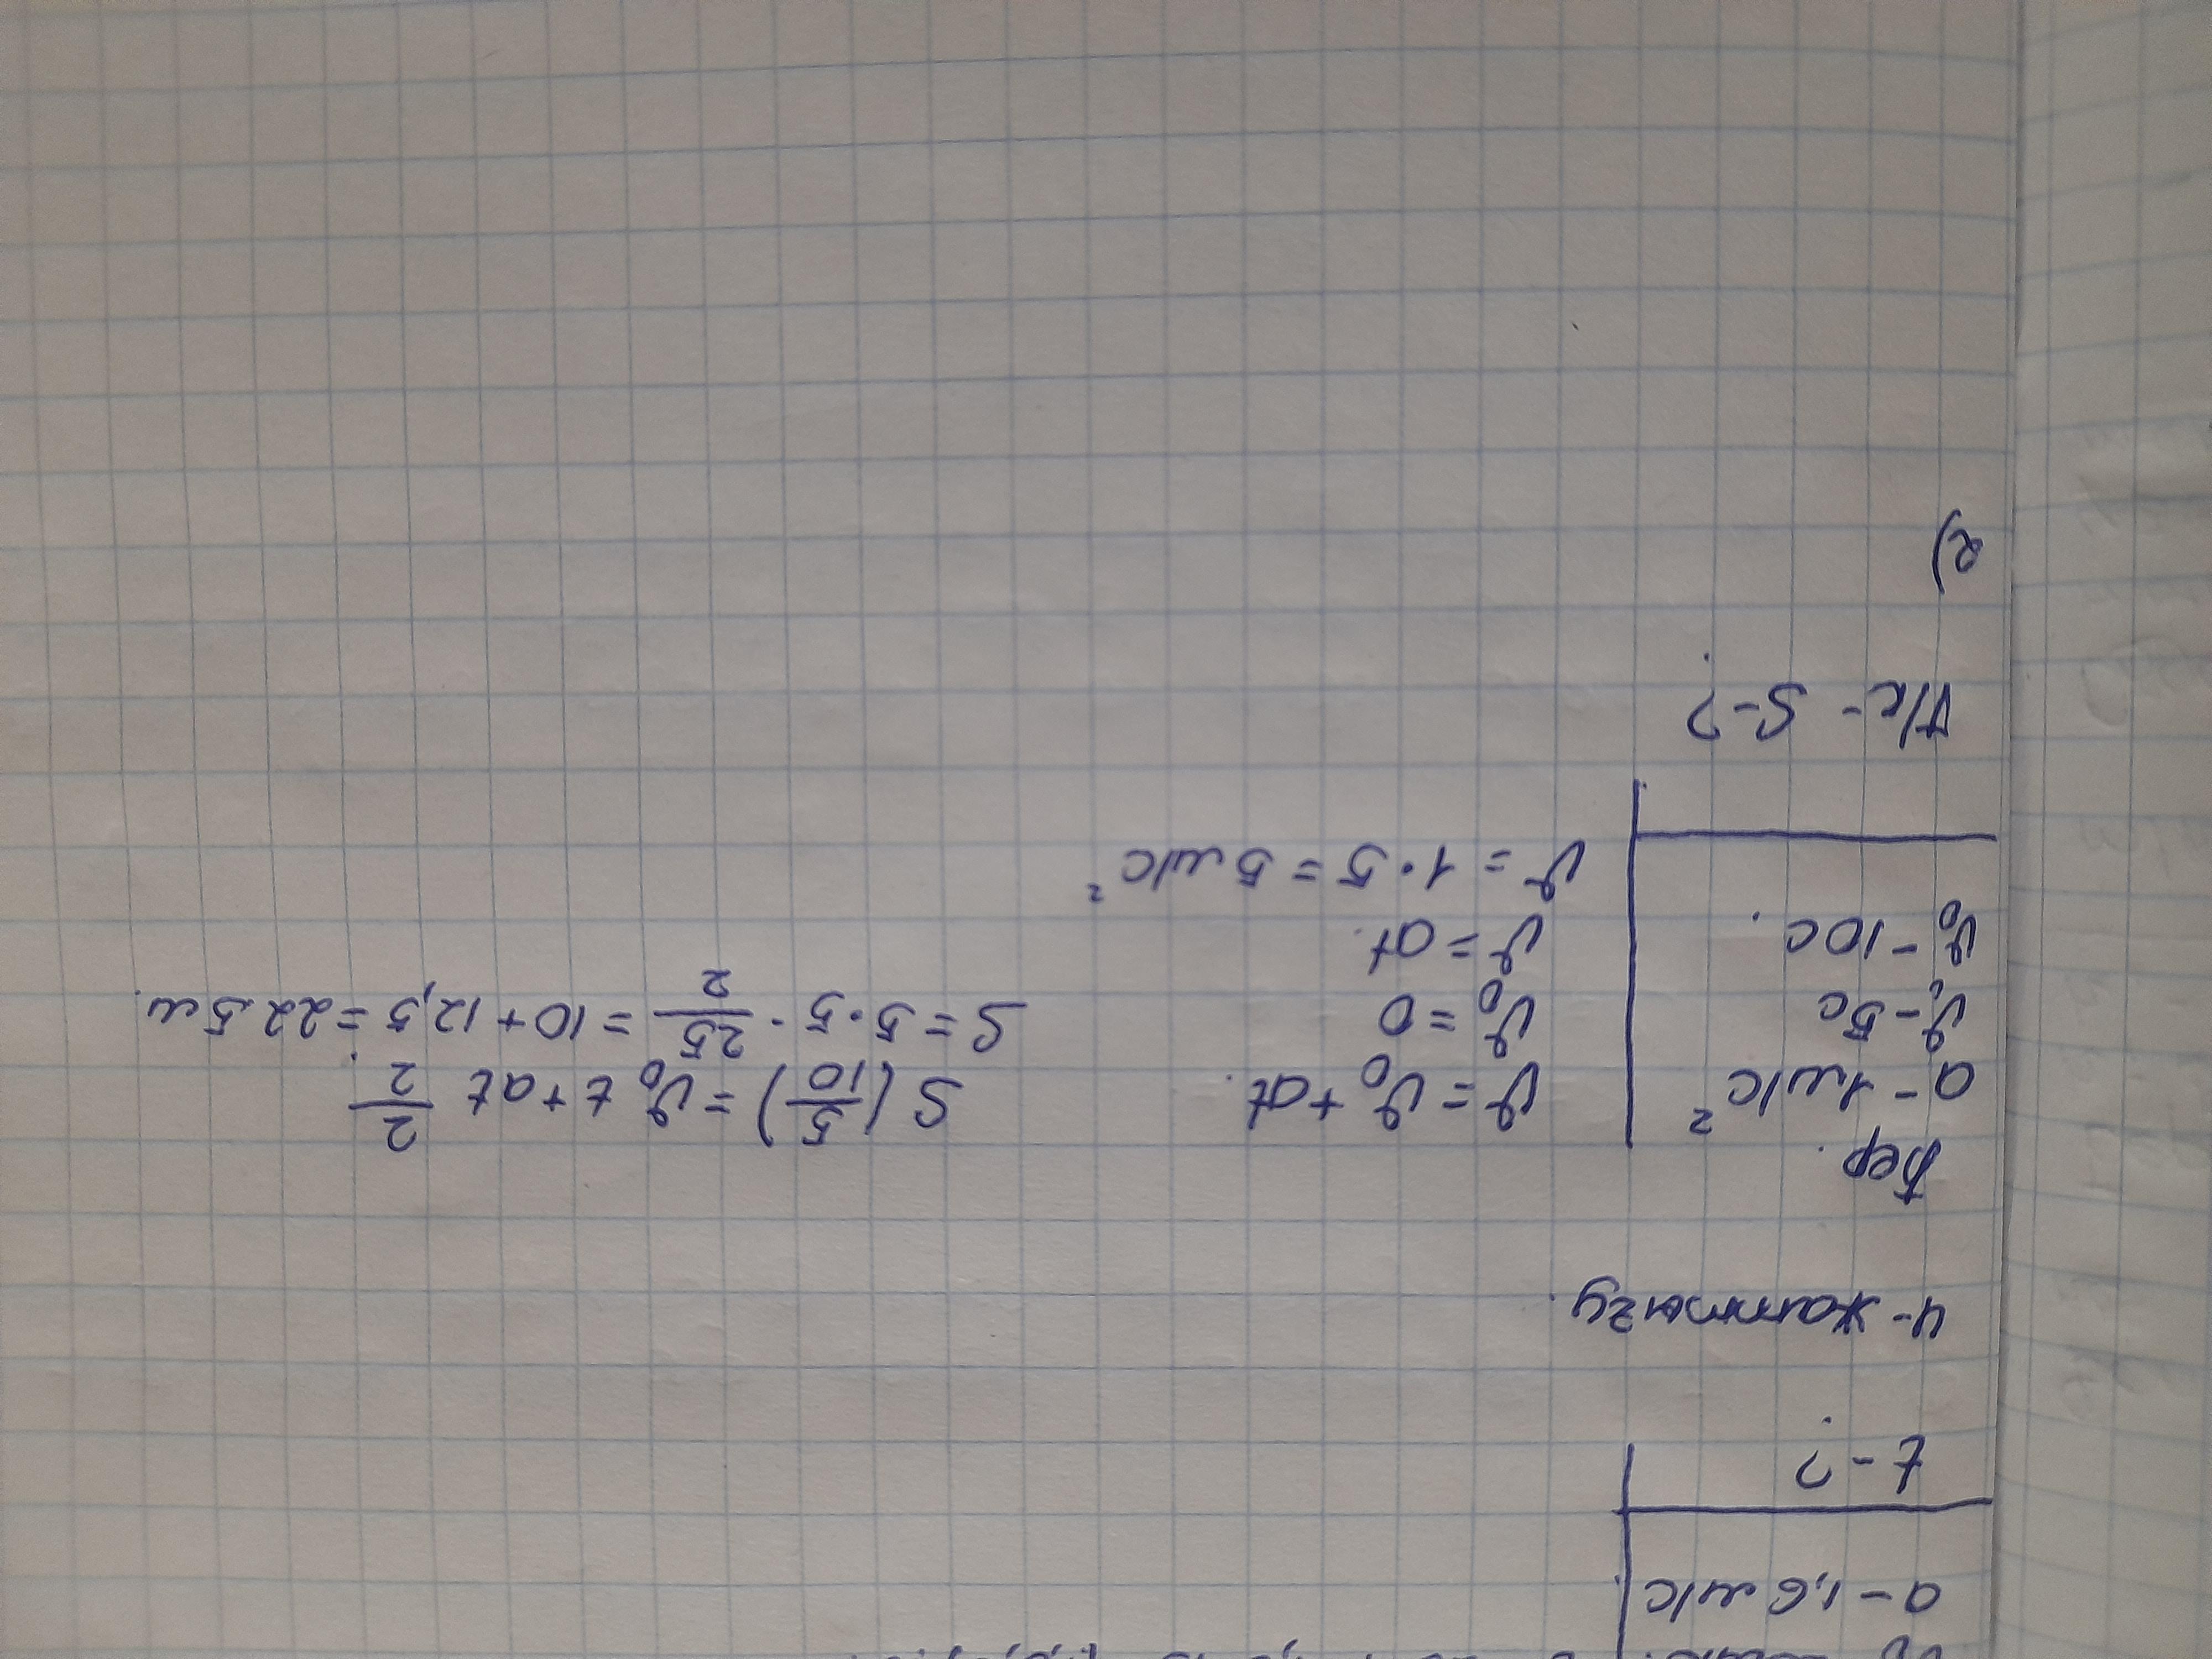 a - 1,6 м/с
t - ?
4-жаттығу.
Бер.
a - 1 м/с²
v₁ - 5с
v₀ - 10с.
Т/к - S - ?
v = v₀ + at.
v₀ = 0
v = at.
v = 1·5 = 5 м/с²
S (5/10) = v₀ t + at 2/2.
S = 5·5·25/2 = 10 + 12,5 = 22 5 м.
2)